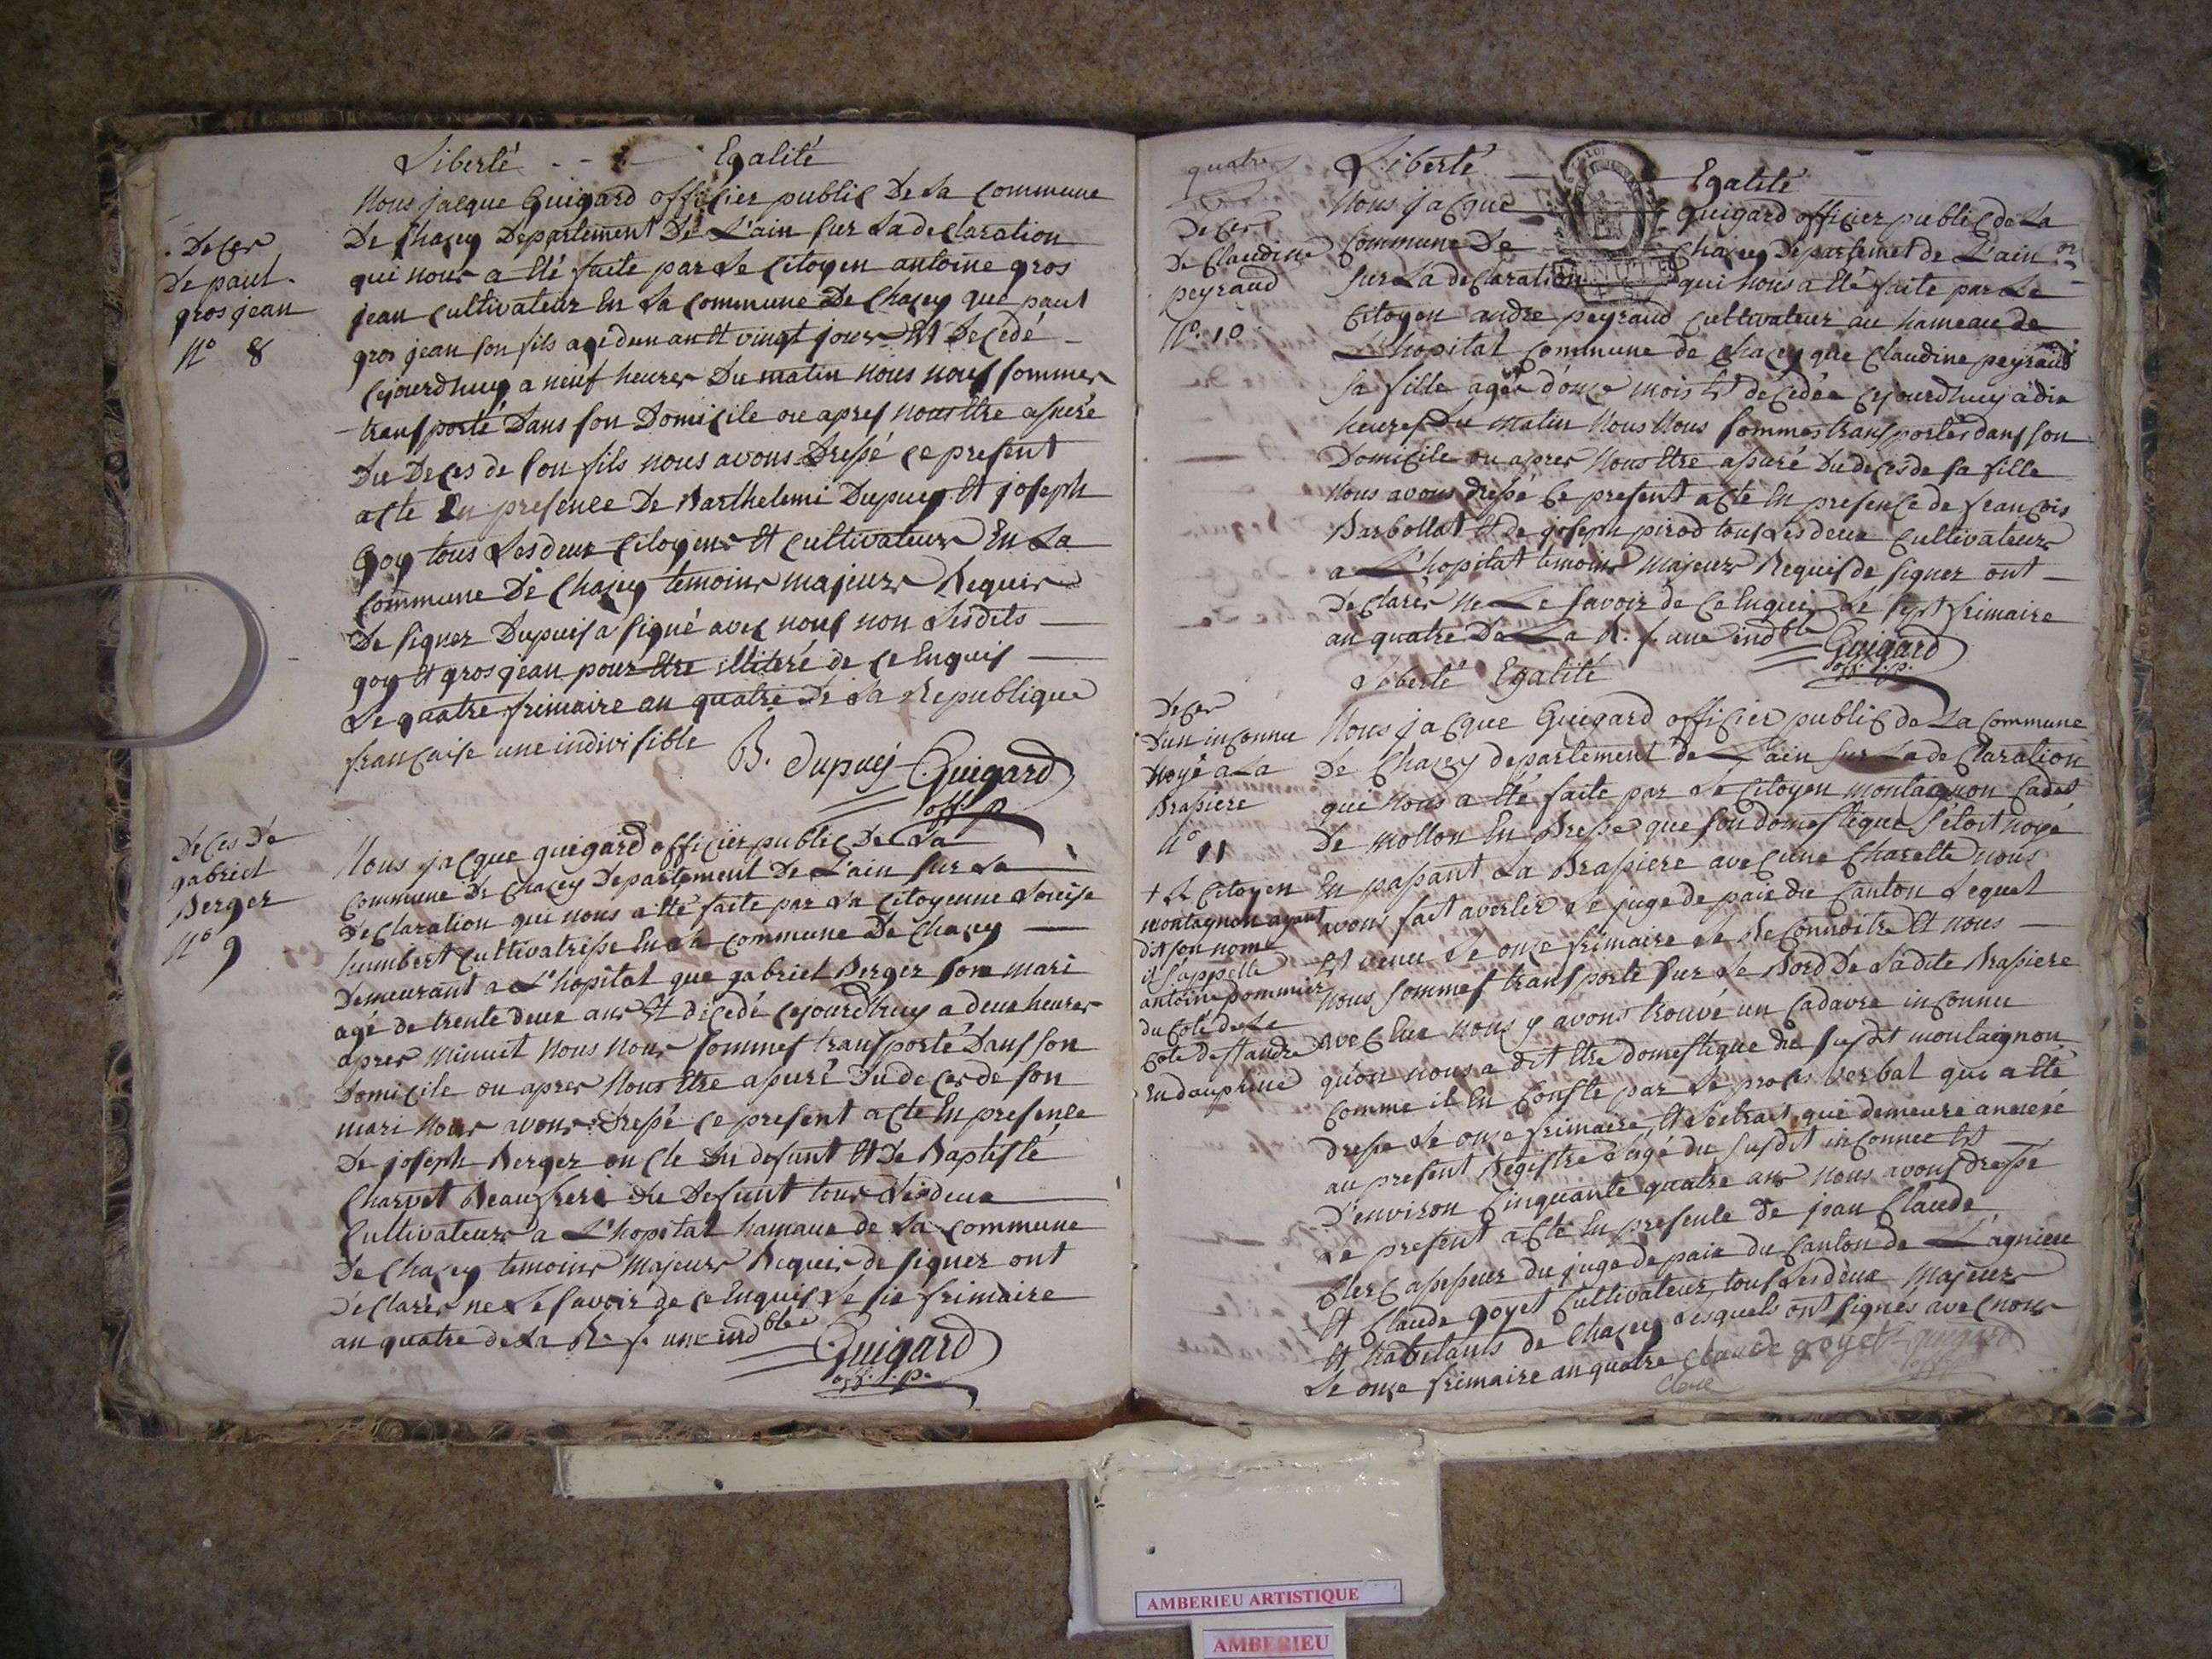 Liberté - - - Egalité
Nous jacque Guigard officier public De La Commune
De Chazey Departement De L'ain sur La declaration
qui nous a Eté faite par Le Citoyen antoine gros
jean Cultivateur En La Commune De Chazey que paul
gros jean son fils agé dun an Et vingt jours Est Decedé
Cejourdhuy a neuf heures Du matin nous nous sommes
transporté Dans son Domicile ou apres nous Etre assuré
Du Deces de son fils nous avons Dressé ce present
acte En presence De Barthelemi Dupuis Et joseph
Goy tous Les deux Citoyens Et Cultivateurs En La
Commune De Chazey temoins majeurs Requis
De signer Dupuis a signé avec nous non Lesdits
goy Et gros jean pour Etre illiteré de ce Enquis
Le quatre frimaire an quatre De La Republique
francaise une indivisible B. Dupuij Guigard
off. p
Deces
De paul
gros jean
N° 8
Deces De
gabriel
Berger
N° 9
Nous jacque guigard officier public De La
Commune De Chazey Departement De L'ain sur La
Declaration qui nous a Eté faite par La Citoyenne Louise
humbert Cultivatrisse En La Commune De Chazey
Demeurant a L'hopital que gabriel Berger son mari
agé de trente deux ans Et décedé cejourdhuy a deux heures
apres minuit Nous Nous sommes transporté Dans son
Domicile ou apres Nous Etre assuré Du deces de son
mari Nous avons Dressé ce present acte En presence
De joseph Berger oncle Du defunt Et De Baptiste
Charvet Beaufrere Du Defunt tous Les deux
Cultivateurs a L'hopital hamaux de La Commune
De Chazey temoins Majeurs Requis de signer ont
Declarés ne Le savoir de ce Enquis Le six frimaire
an quatre de La R. f. une ind ble Guigard
off. p.
quatre
Liberté Egalité
Nous jacque Guigard officier public de La
Commune De Chazey Departemet de L'ain
sur La declaration qui nous a Eté faite par Le
Citoyen andre peyraud Cultivateur au hameau de
L'hopital Commune de Chazey que Claudine peyraud
sa fille agée d'onze mois Est décedée Cejourdhuy à dix
heures Du matin Nous Nous sommes transportés dans son
Domicile ou apres Nous Etre assuré Du deces de sa fille
Nous avons dressé Ce present acte En presence de francois
Barbollat Et De joseph pirod tous Les deux Cultivateurs
a L'hopital temoins Majeurs Requis de signer ont
Declarés Ne Le savoir de Ce Enquis Le sept frimaire
an quatre De La R. f. une ind ble Guigard
off. p.
Deces
De Claudine
peyraud
N° 10
Liberté Egalité
Nous jacque Guigard officier public de La Commune
De Chazey departement de L'ain sur La de Claration
qui nous a Eté faite par Le Citoyen montaignon Cadet
De mollon En Bresse que son domestique s'étoit noyé
En passant La Brassiere avec une Charette nous
avons fait avertir Le juge de paix du Canton Lequel
Est venu Le onze frimaire Le Reconnoitre Et nous
Nous sommes transporté sur Le Bord De Ladite Brassiere
avec Lui nous y avons trouvé un Cadavre inconnu
qu'on nous a dit Etre domestique du susdit montaignon
Comme il En Conste par Le proces verbal qui a Eté
dressé Le onze frimaire, Et L'extrait qui demeure annexé
au present Registre L'agé du susdit inconnu Est
D'environ Cinquante quatre ans nous avons dressé
Le present acte En presence de jean Claude
Clerc assesseur du juge de paix du Canton de L'agnieu
Et Claude goyet Cultivateur, tous Les deux Majeurs
Et habitants de Chazey Lesquels ont signés avec nous
Le onze frimaire an quatre Claude goyet Guigard
Clerc off p
Deces
Dun inconnu
Noyé a La
Brassiere
N° 11
+ Le Citoyen
montagnon ayant
dit son nom
il s'appelle
antoine pommier
du Coté de La
Cote St andre
En dauphiné
AMBERIEU ARTISTIQUE
AMBERIEU